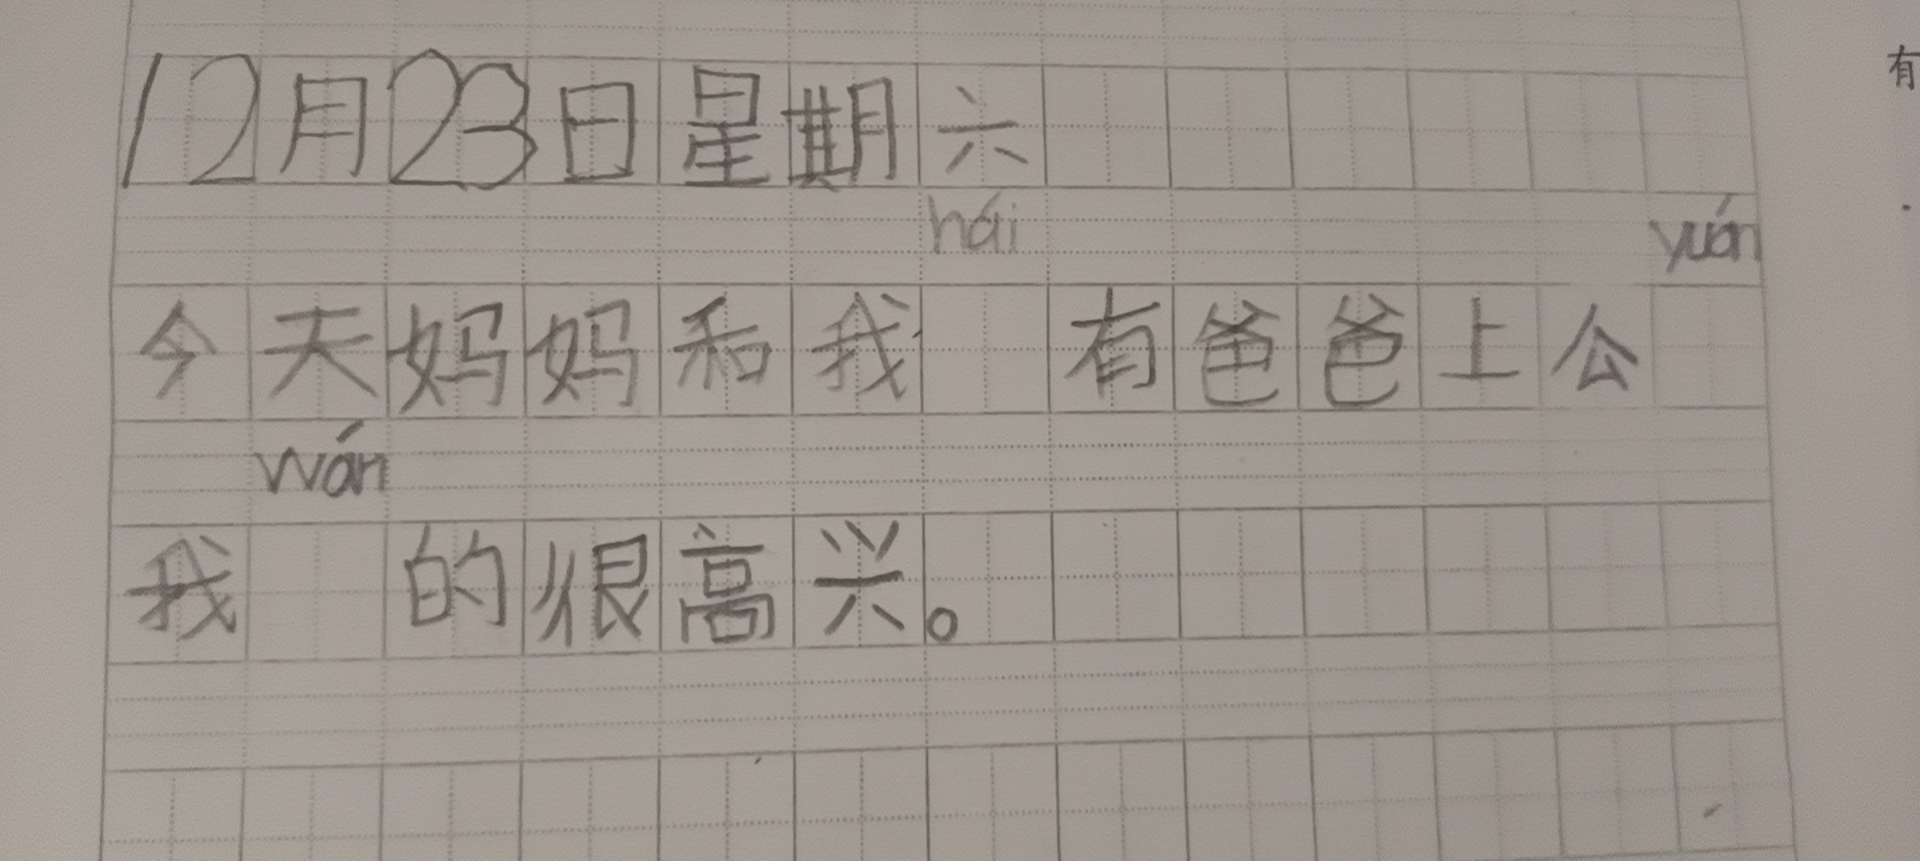 12月23日星期六
hái yuán
今天妈妈和我 有爸爸上公
wán
我 的很高兴。
有